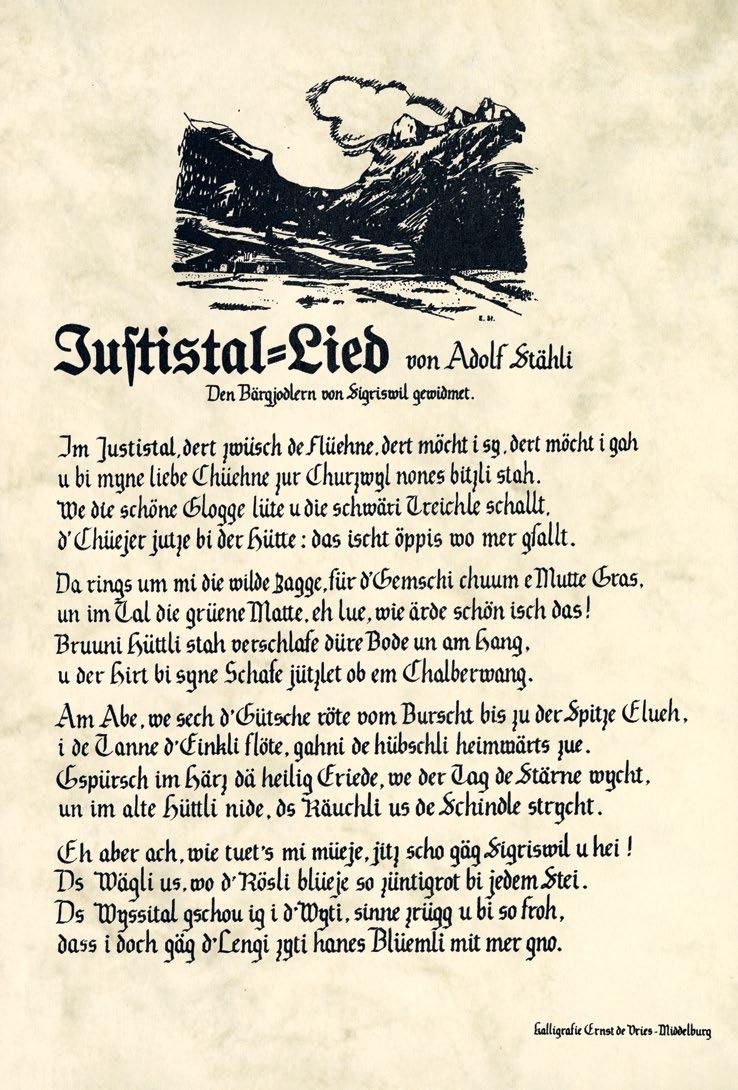 E. St.
Juſtistal=Lied von Adolf Stähli
Den Bärgjodlern von Sigriswil gewidmet.
Im Justistal, dert zwüsch de Flüehne, dert möcht i sy, dert möcht i gah
u bi myne liebe Chüehne zur Churzwyl nones bitzli stah.
We die schöne Glogge lüte u die schwäri Treichle schallt,
d'Chüejer jutze bi der Hütte : das ischt öppis wo mer gfallt.
Da rings um mi die wilde Zagge, für d'Gemschi chuum e Mutte Gras,
un im Tal die grüene Matte, eh lue, wie ärde schön isch das!
Bruuni Hüttli stah verschlafe düre Bode un am Hang,
u der Hirt bi syne Schafe jützlet ob em Chalberwang.
Am Abe, we sech d'Gütsche röte vom Burscht bis zu der Spitze Elueh,
i de Tanne d'Einkli flöte, gahni de hübschli heimwärts zue.
Gspürsch im Härz dä heilig Eriede, we der Tag de Stärne wycht,
un im alte Hüttli nide, ds Räuchli us de Schindle strycht.
Eh aber ach, wie tuet's mi müeje, jitz scho gäg Sigriswil u hei !
Ds Wägli us, wo d'Rösli blüeje so züntigrot bi jedem Stei.
Ds Wyssital gschou ig i d'Wyti, sinne zrügg u bi so froh,
dass i doch gäg d'Lengi zyti hanes Blüemli mit mer gno.
Kalligrafie Ernst de Vries - Middelburg